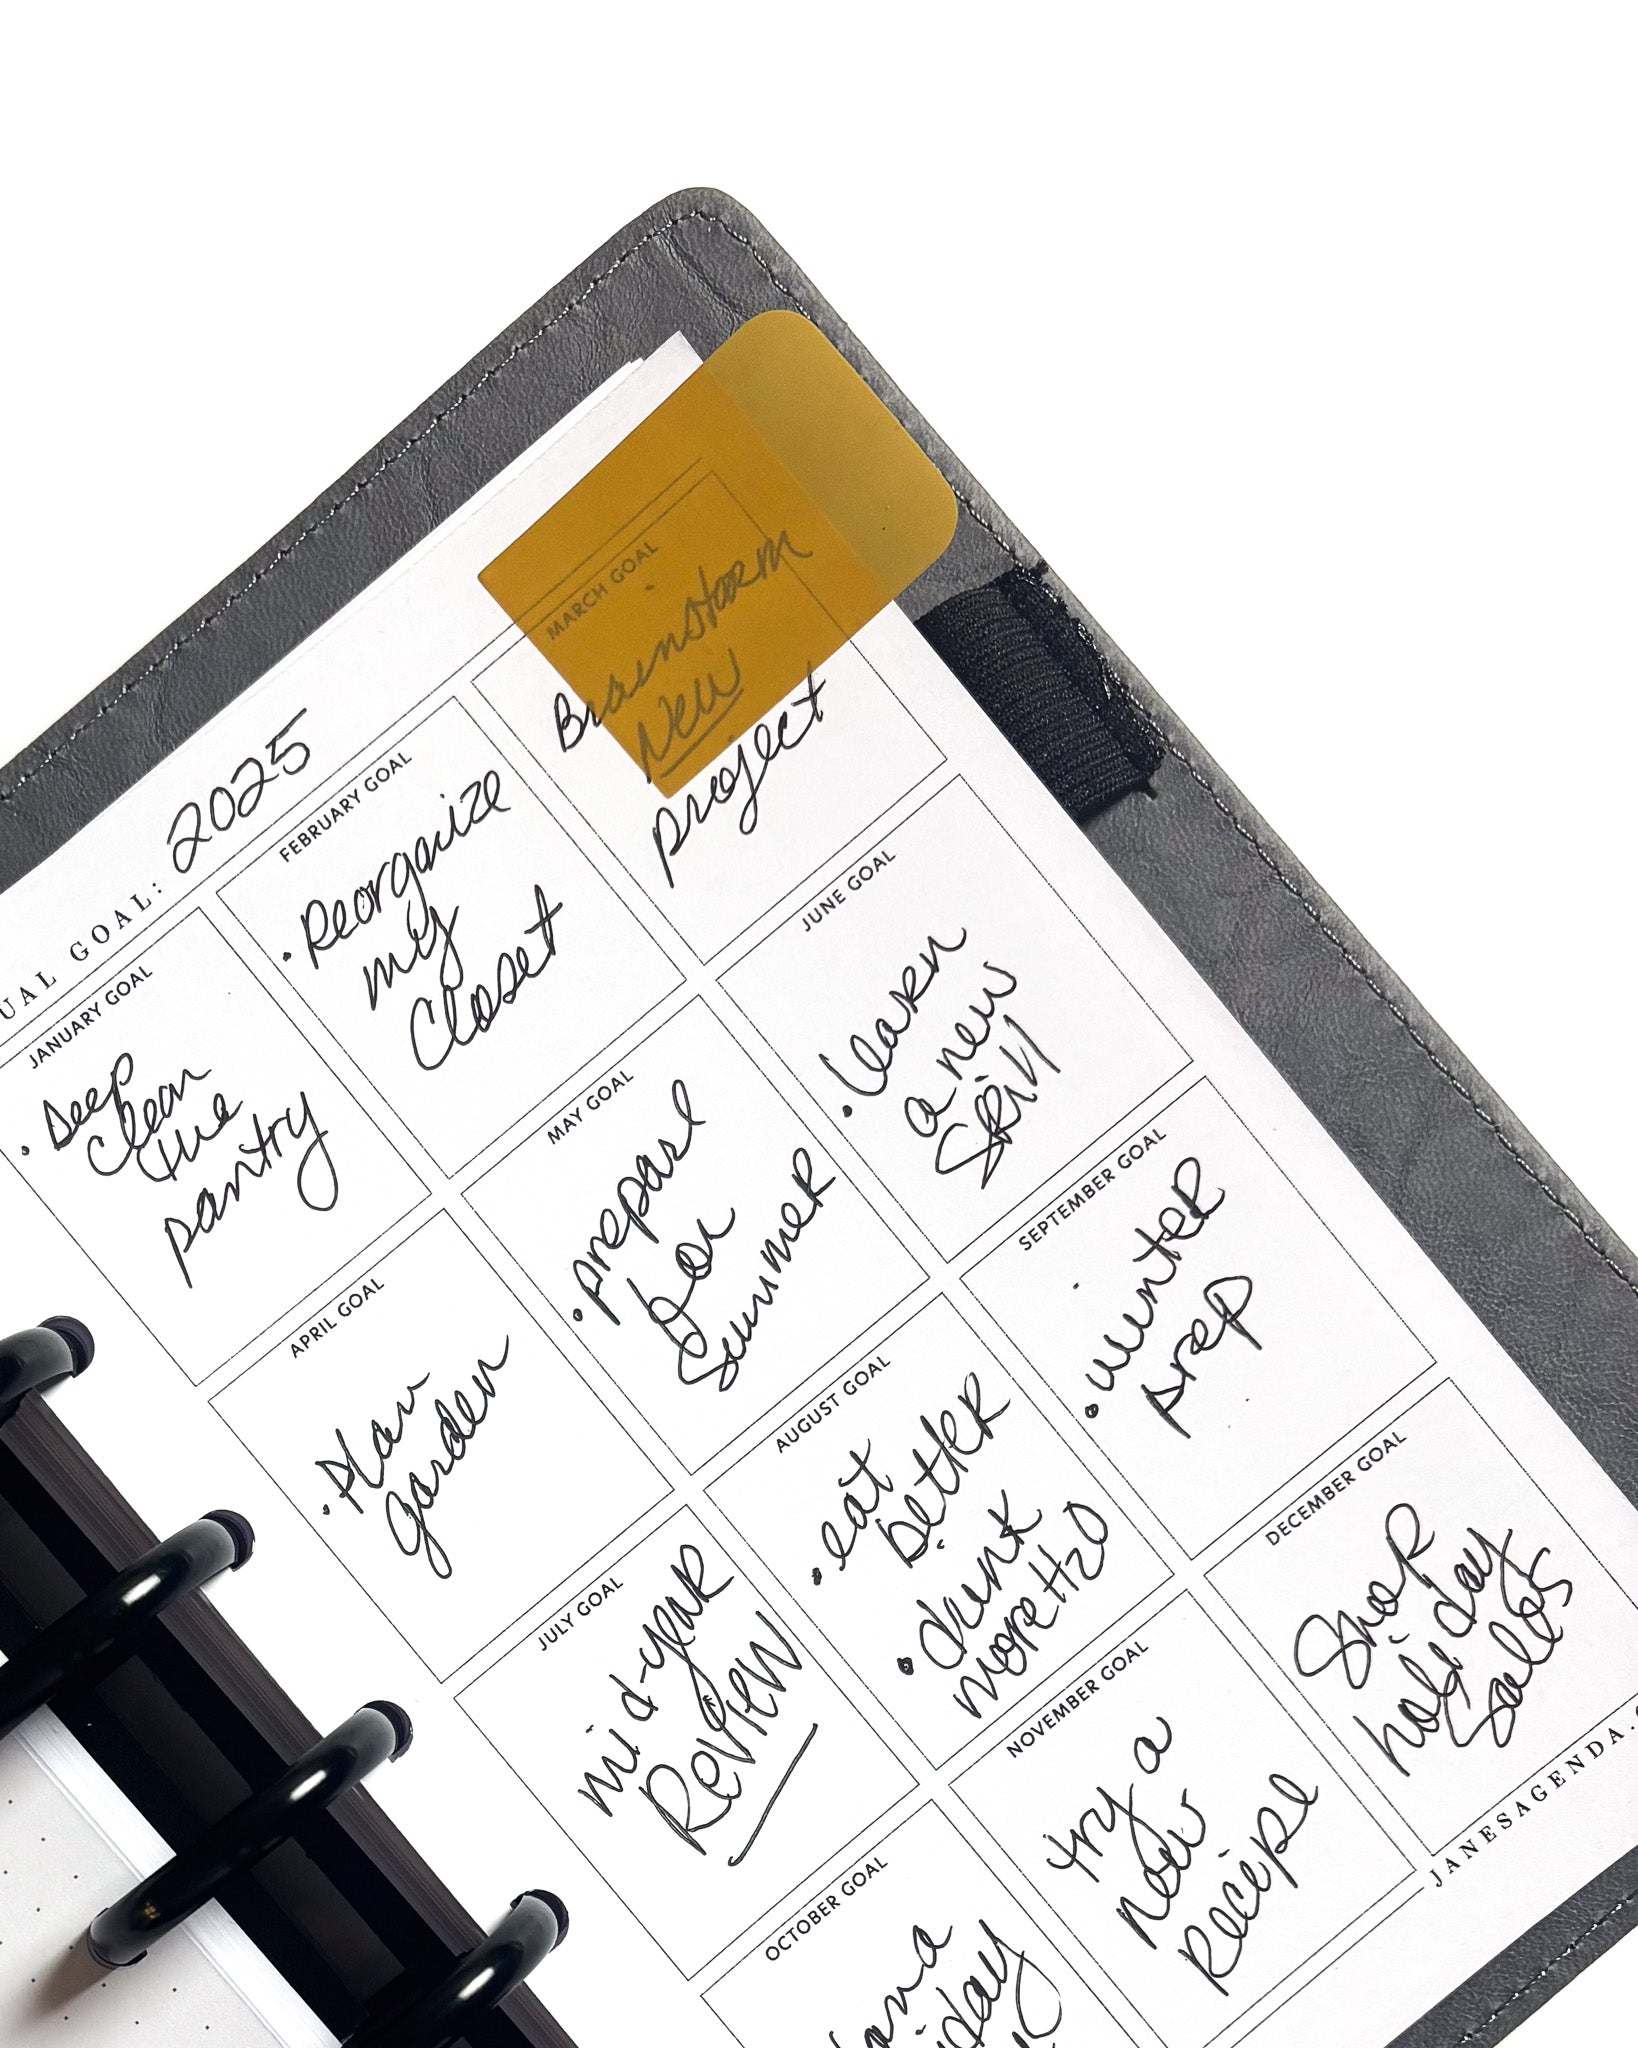 UAL GOAL: 2025
JANUARY GOAL
• Deep
Clean
the
pantry
FEBRUARY GOAL
• Reorganize
my
Closet
MARCH GOAL
Brainstorm
New
project
APRIL GOAL
• Plan
garden
MAY GOAL
• prepare
for
Summer
JUNE GOAL
• learn
a new
Skill
JULY GOAL
mid-year
Review
AUGUST GOAL
• eat
better
• drink
more H2O
SEPTEMBER GOAL
• winter
prep
OCTOBER GOAL
NOVEMBER GOAL
try a
new
Recipe
DECEMBER GOAL
Shop
holiday
Sales
JANESAGENDA.